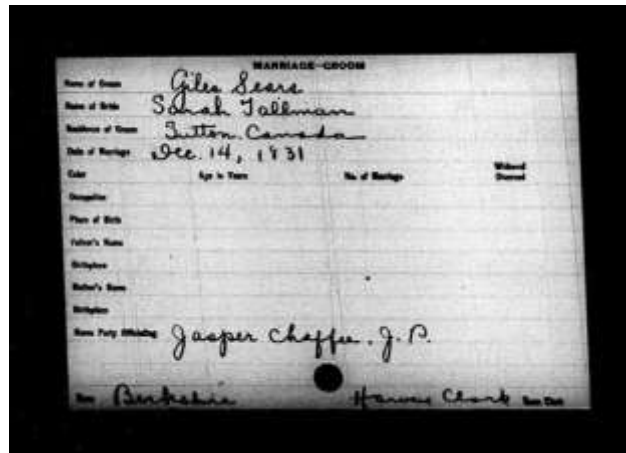 MARRIAGE-GROOM
Name of Groom Giles Sears
Name of Bride Sarah Tallman
Residence of Groom Sutton Canada
Date of Marriage Dec. 14, 1831
Color Age in Years No. of Marriage Widowed
Divorced
Occupation
Place of Birth
Father's Name
Birthplace
Mother's Name
Birthplace
Name Party Officiating Jasper Chaffee. J. P.
Town Berkshire Harvey Clark Town Clerk